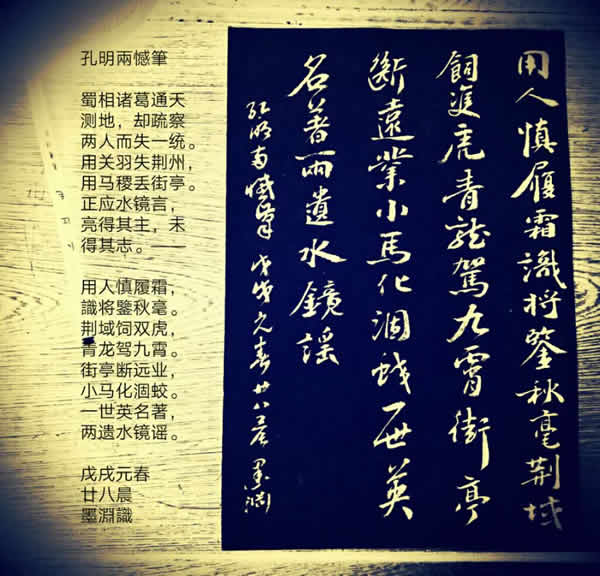 孔明兩憾筆
蜀相诸葛通天
测地，却疏察
两人而失一统。
用关羽失荆州，
用马稷丢街亭。
正应水镜言，
亮得其主，未
得其志。——
用人慎履霜，
識将鑒秋毫。
荆域饲双虎，
青龙驾九霄。
街亭断远业，
小马化涸蛟。
一世英名著，
两遗水镜谣。
戊戌元春
廿八晨
墨淵識
用人慎履霜識将鑒秋毫荆域
飼雙虎青龍駕九霄街亭
斷遠業小馬化涸蛟一世英
名著兩遺水鏡謡
孔明两憾筆 戊戌元春廿八晨 墨渊